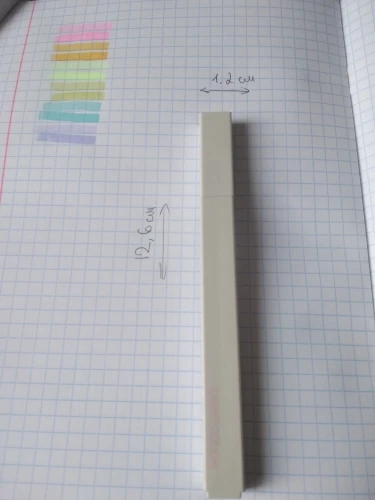 1.2 см
12,6 см